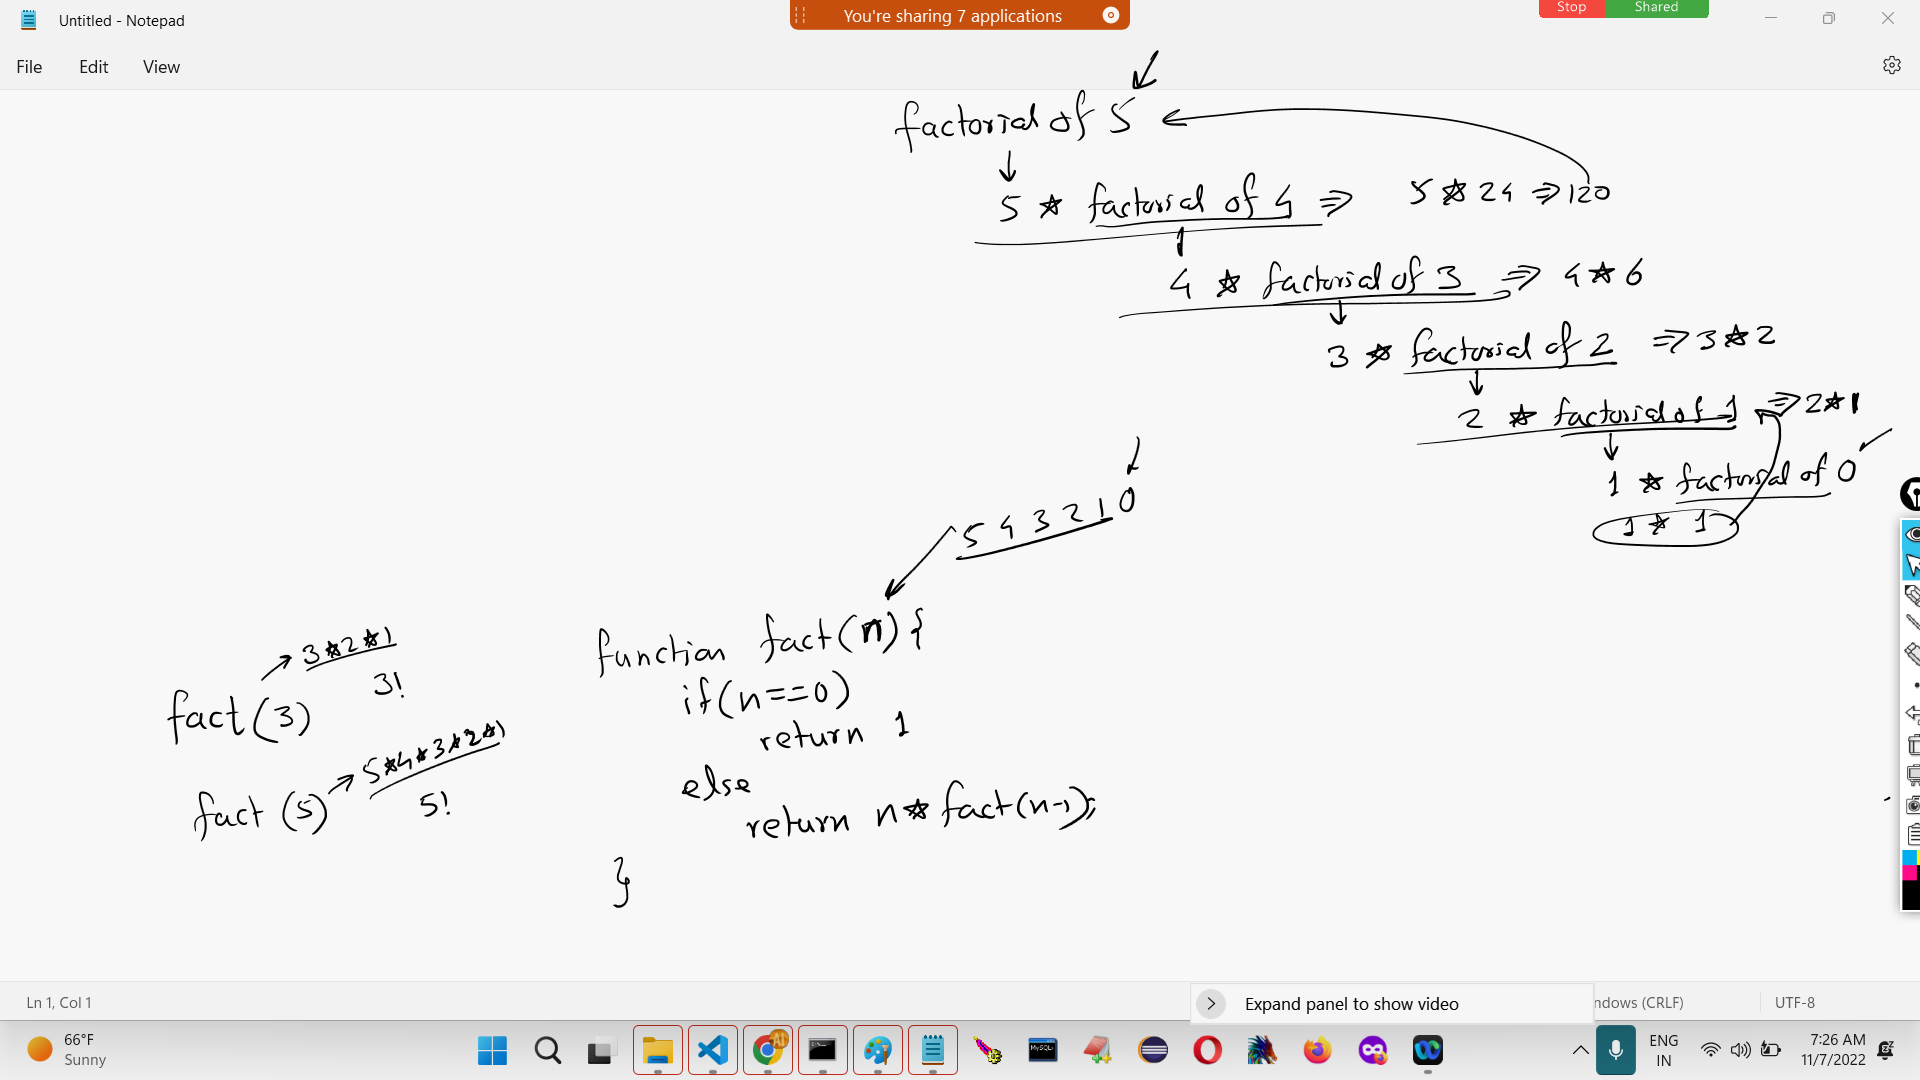 Untitled - Notepad
You're sharing 7 applications
Stop
Shared
File Edit View
factorial of 5
5 * factorial of 4 => 5 * 24 => 120
4 * factorial of 3 => 4 * 6
3 * factorial of 2 => 3 * 2
2 * factorial of 1 => 2 * 1
1 * factorial of 0
1 * 1
5 4 3 2 1 0
3*2*1
3!
fact(3)
5*4*3*2*1
5!
fact (5)
function fact(n){
if(n==0)
return 1
else
return n * fact(n-1);
}
Ln 1, Col 1
Expand panel to show video
ndows (CRLF)
UTF-8
66°F
Sunny
MySQL
ENG
IN
7:26 AM
11/7/2022